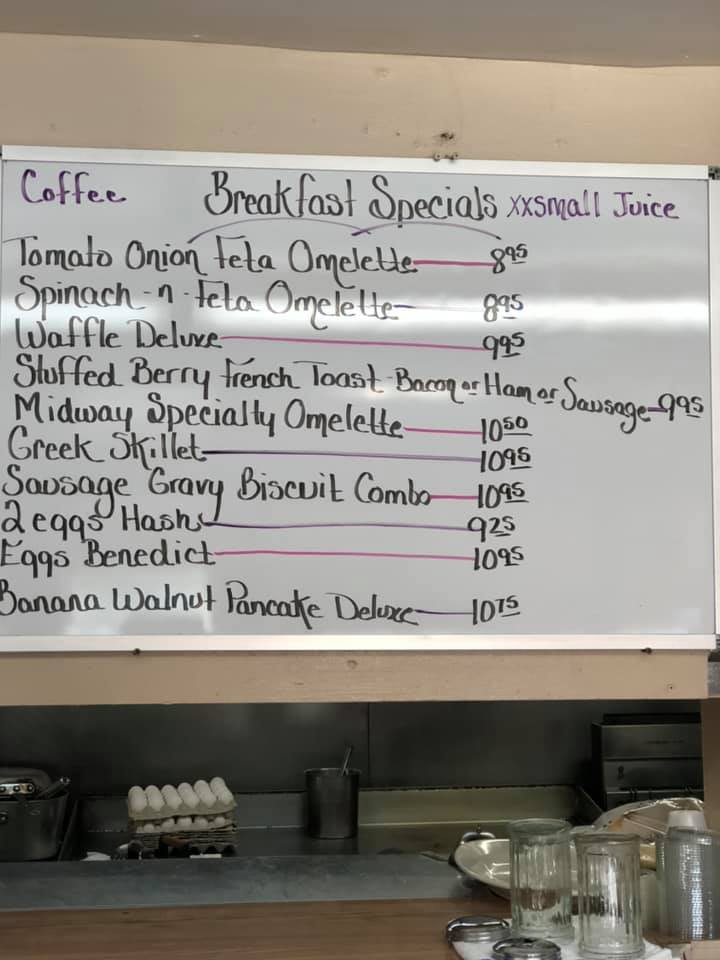 Coffee Breakfast Specials xxsmall Juice
Tomato Onion Feta Omelette 8.95
Spinach-n-Feta Omelette 8.95
Waffle Deluxe 9.95
Stuffed Berry French Toast Bacon or Ham or Sausage 9.95
Midway Specialty Omelette 10.50
Greek Skillet 10.95
Sausage Gravy Biscuit Combo 10.95
2 eggs Hash 9.25
Eggs Benedict 10.95
Banana Walnut Pancake Deluxe 10.75